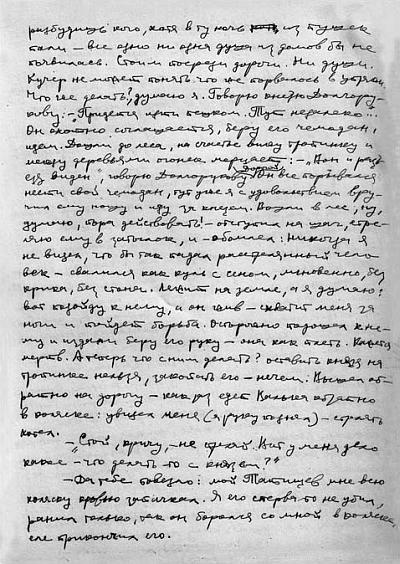 разбудишь кого, хотя в ту ночь из пушек
пали – все одно ни одна душа из домов бы не
появилась. Стоим посреди дороги. Ни души.
Кучер не может понять что же порвалось в упряжи.
Что же делать? думаю я. Говорю князю Долгору-
кову: – Придется идти пешком. Тут недалеко...
Он охотно соглашается, беру его чемодан,
идем. Дошли до леса, на счастье вижу тропинку и
между деревьями огонек мерцает: – „Вон и разъ-
езд виден", говорю Долгорукову. Он все порывался
нести свой чемодан, тут уже я с удовольствием вру-
чил ему ношу и иду за князем. Вошли в лес, ну,
думаю, пора действовать! – отступил на шаг, стре-
ляю ему в затылок, и – обомлел: никогда я
не видел, что бы так падал расстрелянный чело-
век – свалился как куль с сеном, мгновенно, без
крика, без стона. Лежит на земле, а я думаю:
вот подойду к нему, а он жив – схватит меня за
ноги и пойдет борьба. Осторожно подошел к не-
му и издали беру его руку – она как плеть. Кажется
мертв. А теперь что с ним делать? оставить князя на
тропинке нельзя, закопать его – нечем. Вышел об-
ратно на дорогу – как раз едет обратно
в коляске: увидел меня (я руку поднял) – стрелять
хотел.
– „Стой, кричу, – не стреляй. Вот у меня дело
какое – что делать-то с князем?"
– Да тебе повезло: мой Татищев мне всю
коляску кровью запачкал. Я его стерва-то не убил,
ранил только, так он боролся со мной в коляске,
еле прикончил его.